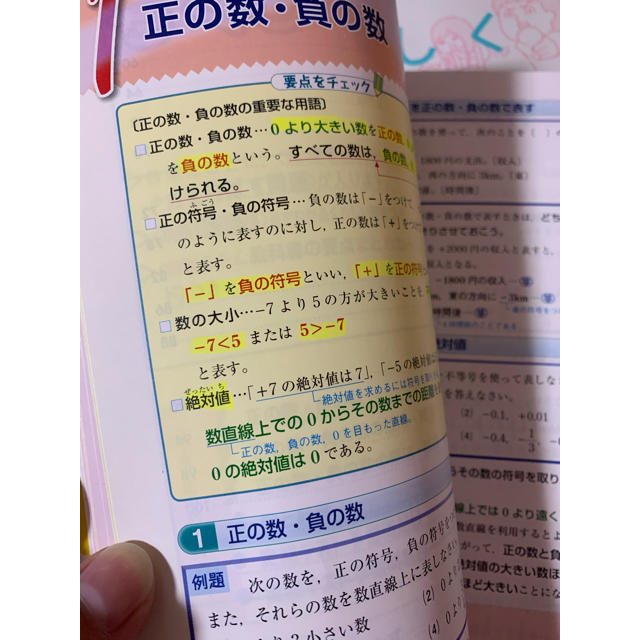 正の数・負の数
要点をチェック
〔正の数・負の数の重要な用語〕
正の数・負の数…0より大きい数を正の数
を負の数という。すべての数は，負の数
けられる。
ふごう
正の符号・負の符号…負の数は「－」をつけて
のように表すのに対し，正の数は「＋」をつけ
と表す。
「－」を負の符号といい，「＋」を正の符号
数の大小…－7より5の方が大きいことを
－7<5 または 5>－7
と表す。
ぜったいち
絶対値…「＋7の絶対値は7」，「－5の絶対値は
絶対値を求めるには符号を取
数直線上での0からその数までの距離
正の数，負の数，0を目もった直線。
0の絶対値は0である。
1 正の数・負の数
例題 次の数を，正の符号，負の符号を
また，それらの数を数直線上に表しなさい
(2) 0より
小さい数
(4) 0より
しく
を正の数・負の数で表す
を使って，次のことを( )の
1800円の支出。〔収入〕
西の方向に3km。〔東〕
〔時間後〕
数・負の数で表すときは，どち
させておこう。
を＋2000円の収入と表すと，
収入となる。
－1800円の収入…答
km，東の方向に－3km…答
時間後…答
絶対値
不等号を使って表しな
を答えなさい。
(2) －0.1，＋0.01
(4) －0.4，－1/3，－0
その数の符号を取り
線上では0より遠く
数直線を利用すると
がって，正の数と負
絶対値の大きい数ほ
ほど大きいことにな